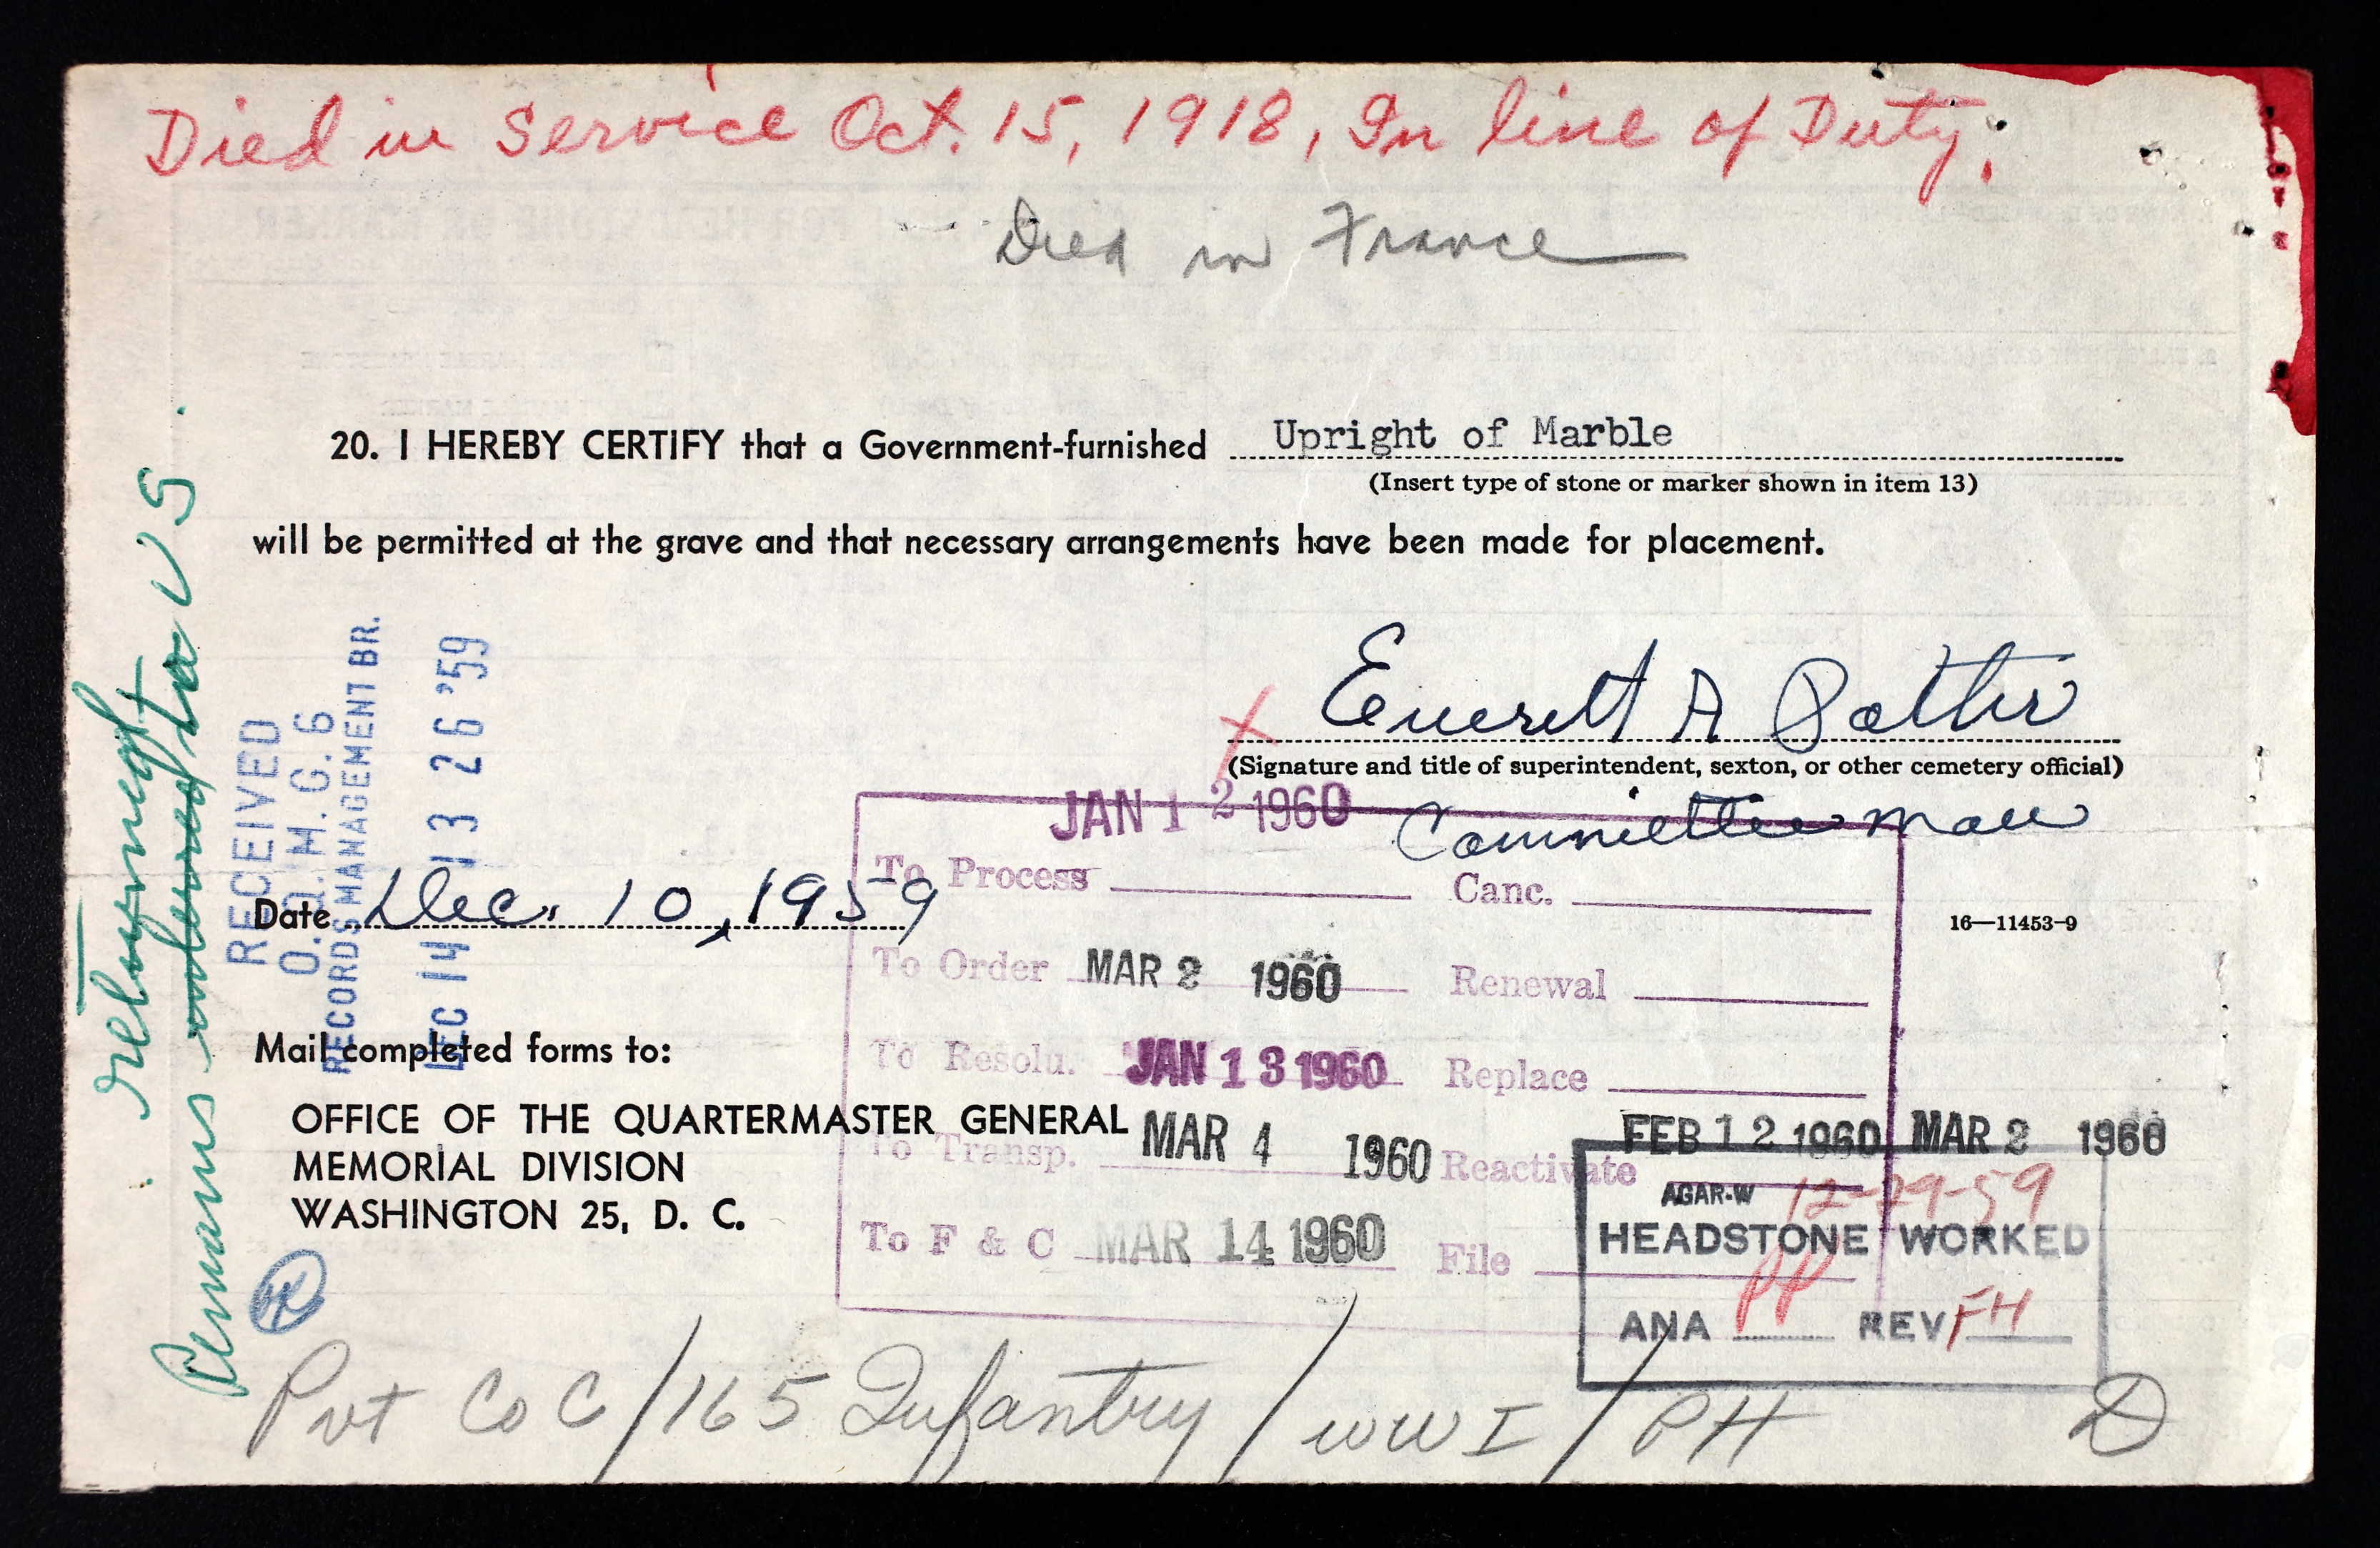 Died in Service Oct. 15, 1918, In line of Duty;
Died in France
20. I HEREBY CERTIFY that a Government-furnished Upright of Marble
(Insert type of stone or marker shown in item 13)
will be permitted at the grave and that necessary arrangements have been made for placement.
Everett A Potter
(Signature and title of superintendent, sexton, or other cemetery official)
Committee man
Date Dec. 10, 1959
16—11453-9
Mail completed forms to:
OFFICE OF THE QUARTERMASTER GENERAL
MEMORIAL DIVISION
WASHINGTON 25, D. C.
RECEIVED
O.Q.M.G. 6
RECORDS MANAGEMENT BR.
DEC 14 13 26 '59
Remains
to US
JAN 12 1960
To Process
Canc.
To Order MAR 2 1960
Renewal
To Resolu. JAN 13 1960
Replace
To Transp. MAR 4 1960
Reactivate
FEB 12 1960 MAR 2 1960
To F & C MAR 14 1960
File
AGAR-W 12-29-59
HEADSTONE WORKED
ANA PP REV FH
Pvt Co C/165 Infantry/WW I/PH
D